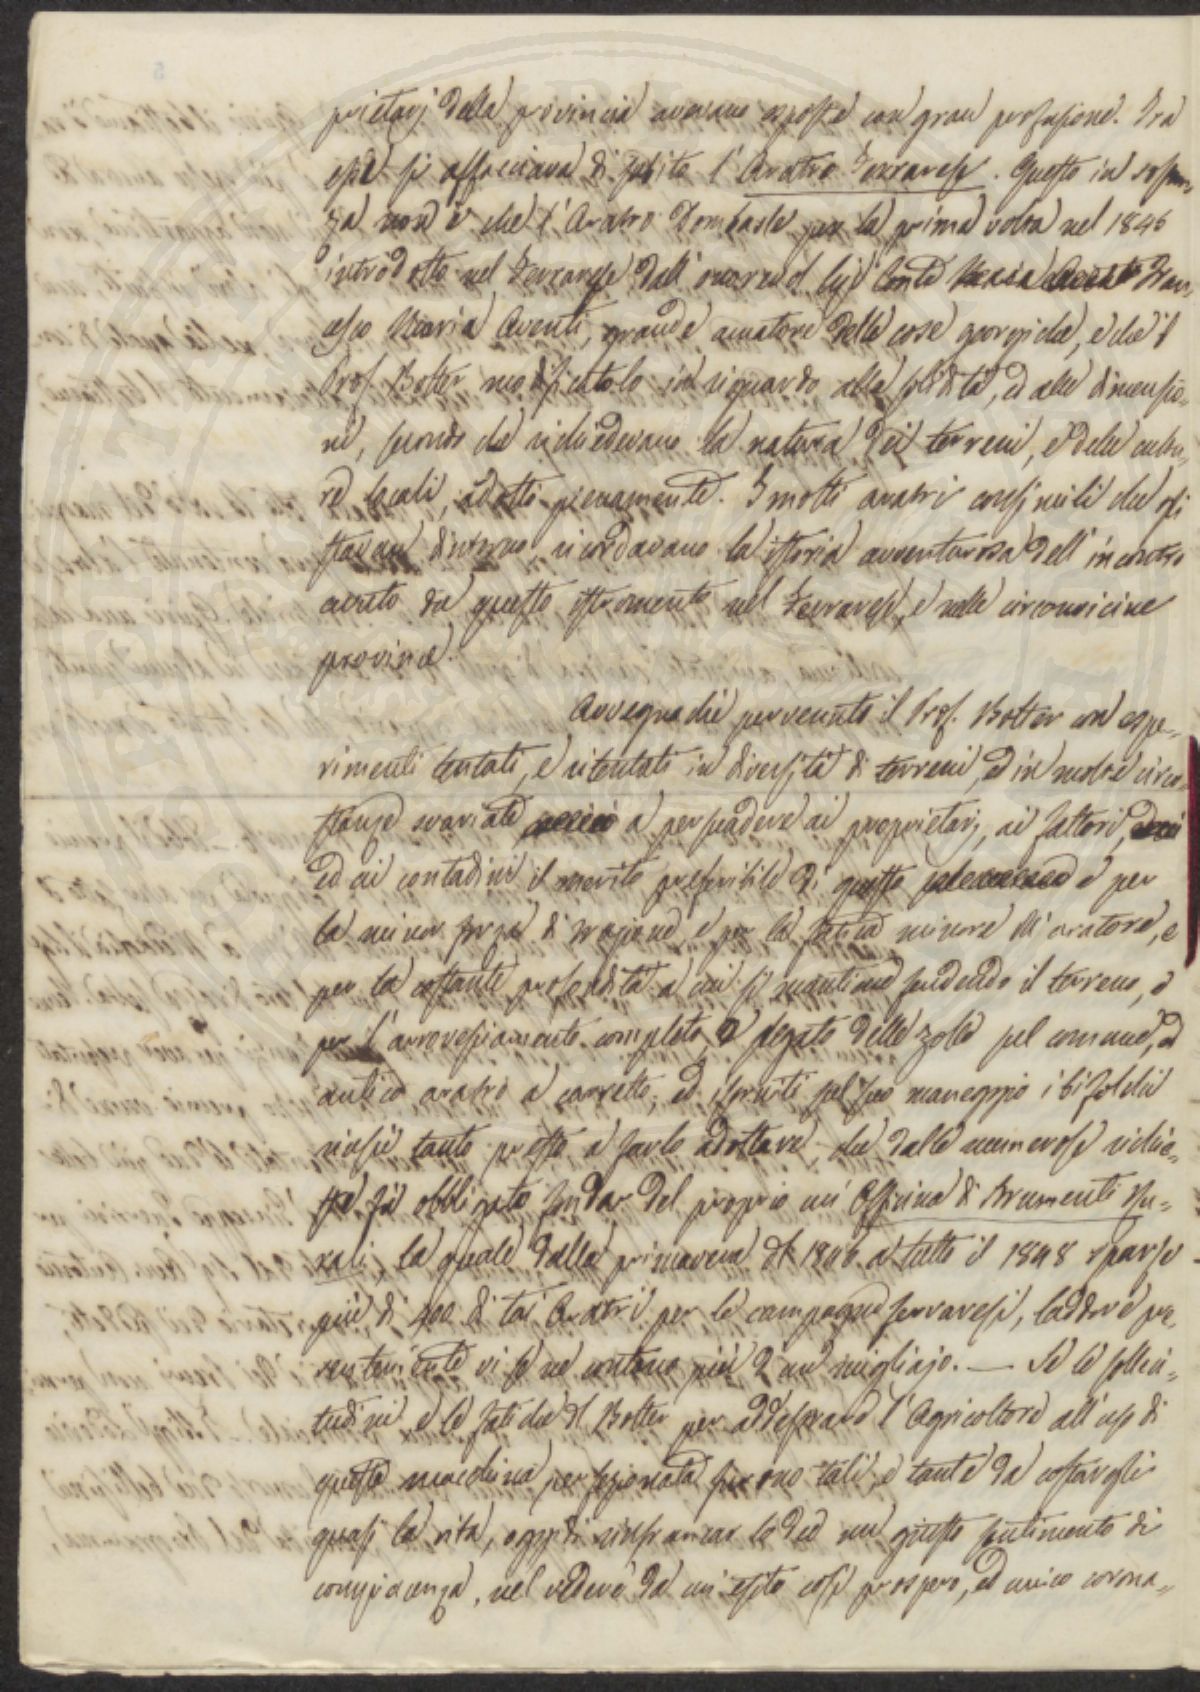 prietarj della provincia avevano esposte con gran profusione. Fra
esse si affacciava di subito l'Aratro Ferrarese. Questo in sostan-
za non è che l'Aratro Dombasle per la prima volta nel 1846
introdotto nel Ferrarese dall' onorevol Sig. Conte Fran-
cesco Maria Aventi, grande amatore delle cose georgiche, e che il
Prof. Botter modificatolo in riguardo alla solidità, ed alle dimensio-
ni, secondo che richiedevano la natura dei terreni, e delle cultu-
re locali, adottò pienamente. I molti aratri consimili che gli
stavano d'intorno, ricordavano la istoria avventurosa dell' incontro
avuto da questo istromento nel Ferrarese, e nelle circonvicine
provincie.
Avvegnachè pervenuto il Prof. Botter con espe-
rimenti tentati, e ritentati in diversità di terreni, ed in molte circo-
stanze svariate a persuadere ai proprietarj, ai fattori,
ed ai contadini il merito preferibile di questo e per
la minor forza di trazione, e per la fatica minore all'aratore, e
per la costante profondità a cui si mantiene fendendo il terreno, e
per l'arrovesciamento completo, e slegato delle zolle sul comune, ed
antico aratro a carretto, ed istruiti sul suo maneggio i bifolchi
riescì tanto presto a farlo adottare, che dalle numerose richie-
ste fù obbligato fondar del proprio un' Officina di Strumenti Ru-
rali, la quale dalla primavera del 1846 a tutto il 1848 sparse
più di 400 di tai Aratri per le campagne ferraresi, laddove pre-
sentemente vi se ne contano più d'un migliajo. — Se le solleci-
tudini e le fatiche del Botter per addestrare l'Agricoltore all'uso di
questa macchina perfezionata furono tali, e tante da costargli
quasi la vita, oggidì rinfrancar lo deve un giusto sentimento di
compiacenza, nel vedere da un esito così prospero, ed unico corona-